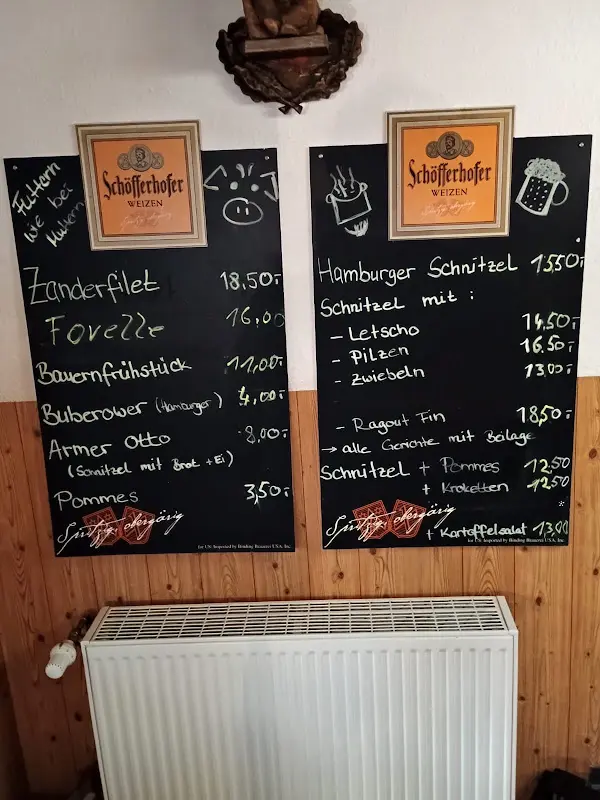 Futtern
wie bei
Muttern
Schöfferhofer
WEIZEN
Zanderfilet 18,50,-
Forelle 16,00
Bauernfrühstück 11,00,-
Buberower (Hamburger) 4,00,-
Armer Otto 8,00,-
(Schnitzel mit Brot + Ei)
Pommes 3,50,-
Spritzig, obergärig
for US. Imported by Binding Brauerei USA, Inc.
Schöfferhofer
WEIZEN
Hamburger Schnitzel 15,50,-
Schnitzel mit :
- Letscho 14,50,-
- Pilzen 16,50,-
- Zwiebeln 13,00,-
- Ragout Fin 18,50,-
→ alle Gerichte mit Beilage
Schnitzel + Pommes 12,50
+ Kroketten 12,50
+ Kartoffelsalat 13,00
Spritzig, obergärig
for US. Imported by Binding Brauerei USA, Inc.